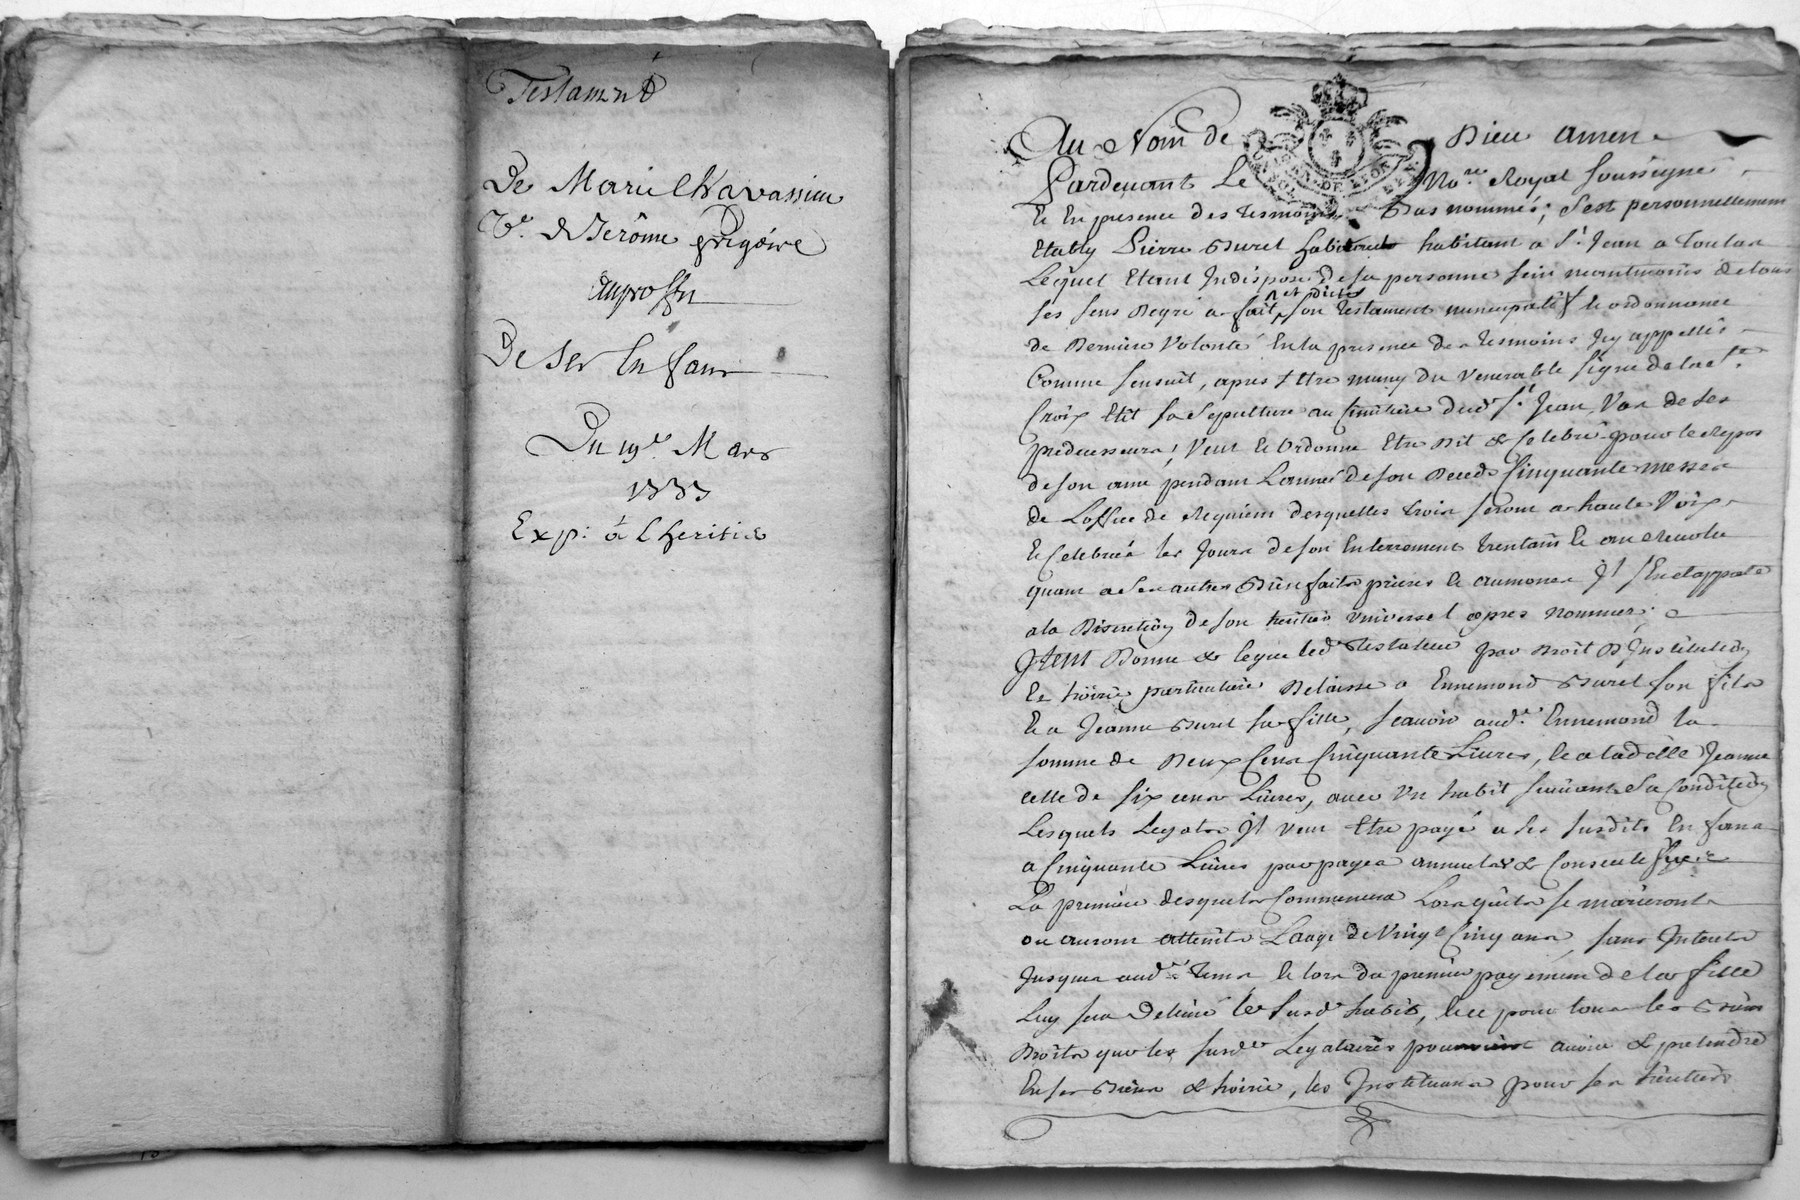 Testament
De Marie Chavassieu
Ve. de Jerôme grégoire
au proffit
De Ses Enfans
Du 19e. Mars
1737
Exp: à l'heritier
Au Nom de Dieu amen
Pardevant Le Nore. Royal soussigné
et En presence des tesmoins Bas nommés, s'est personnellement
Etably Pierre Buret habitant a St. Jean a Toulas
Lequel Etant Indisposé de sa personne sein neantmoins de tous
ses sens De gré a fait et dicté son testament nuncupatif et ordonnance
de Derniere Volonté En la presence des tesmoins Icy appellés
Comme sensuit, apres Etre muny du venerable signe de la Ste.
Croix Elit sa Sepulture au Cimetiere dud. St. Jean, Vas de ses
predecesseurs, Veut et Ordonne Etre Dit & Celebré pour le Repos
de son ame pendant Lannée de son Deced Cinquante messes
de Loffice de Requiem desquelles trois seront a haute Voix
et Celebrées les Jours de son Enterrement trentain et an revolu
quant a Ses autres Bienfaits prieres et aumones Il s'En rapporte
a la Discretion de son heritier universel apres nommer
Item Donne & legue led. testateur par Droit D'Institution
et hoirie particuliere Delaisse a Ennemond Buret son fils
et a Jeanne Buret sa fille, scavoir aud. Ennemond la
somme de Deux Cens Cinquante Livres, et a ladelle Jeanne
celle de six cens Livres, avec Un habit suivant Sa Condition
Lesquels Legats Il veut Etre payé a ses susdits Enfans
a Cinquante Livres par payes annuelles & Consecutives
La premiere desquelles Commencera Lors qu'ils se marieront
ou auront atteints Laage de Vingt Cinq ans, sans Interets
Jusques aud. tems et lors du premier payement de la fille
Luy sera Delivré le susd. habit, et ce pour tous les Biens
Droits que les susd. Legataires pourroient avoir & pretendre
En ses Biens & hoirie, les Instituant pour ses heritiers